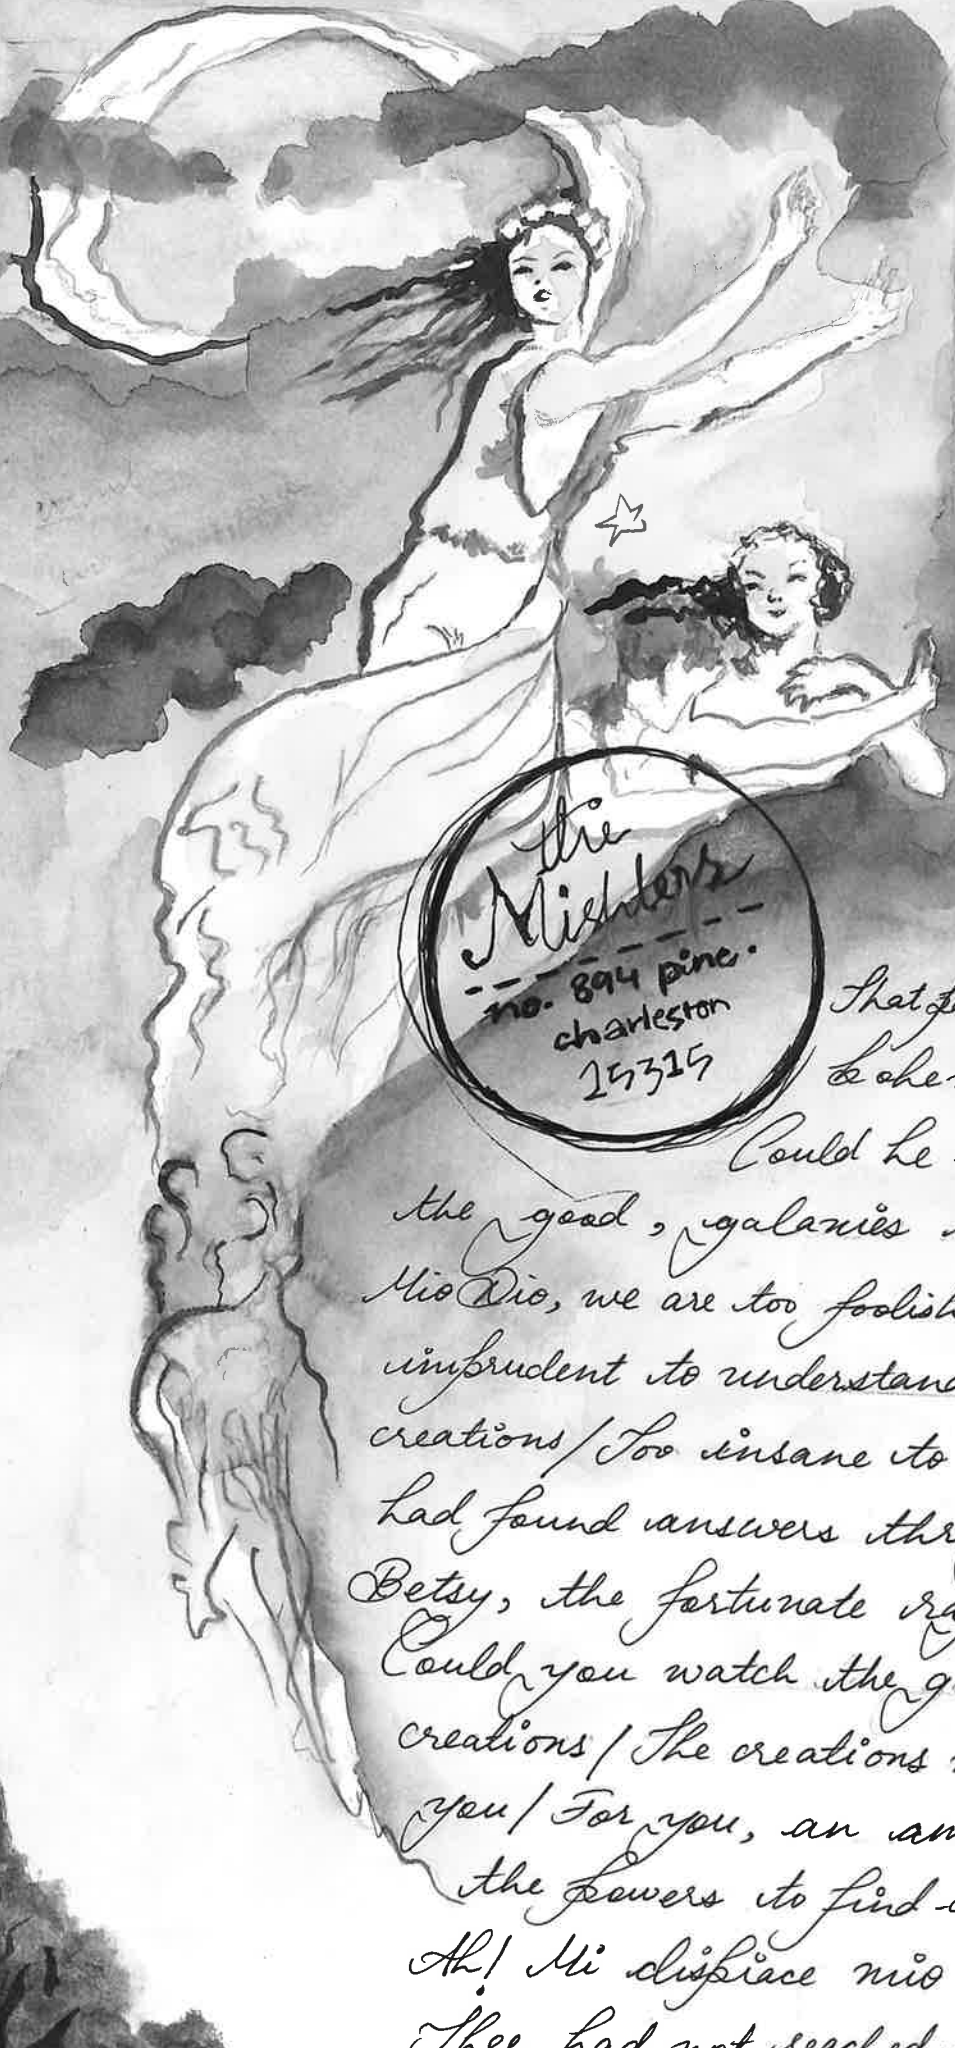 the
Mishlers
no. 894 pine.
charleston
15315
That
Could he
the good, galaxies
Mio Dio, we are too foolish
imprudent to understand
creations/Too insane to
had found answers
Betsy, the fortunate
Could you watch the
creations/The creations
you/For you, an
the powers to find
Ah! Mi dispiace mio
Thee had not reached